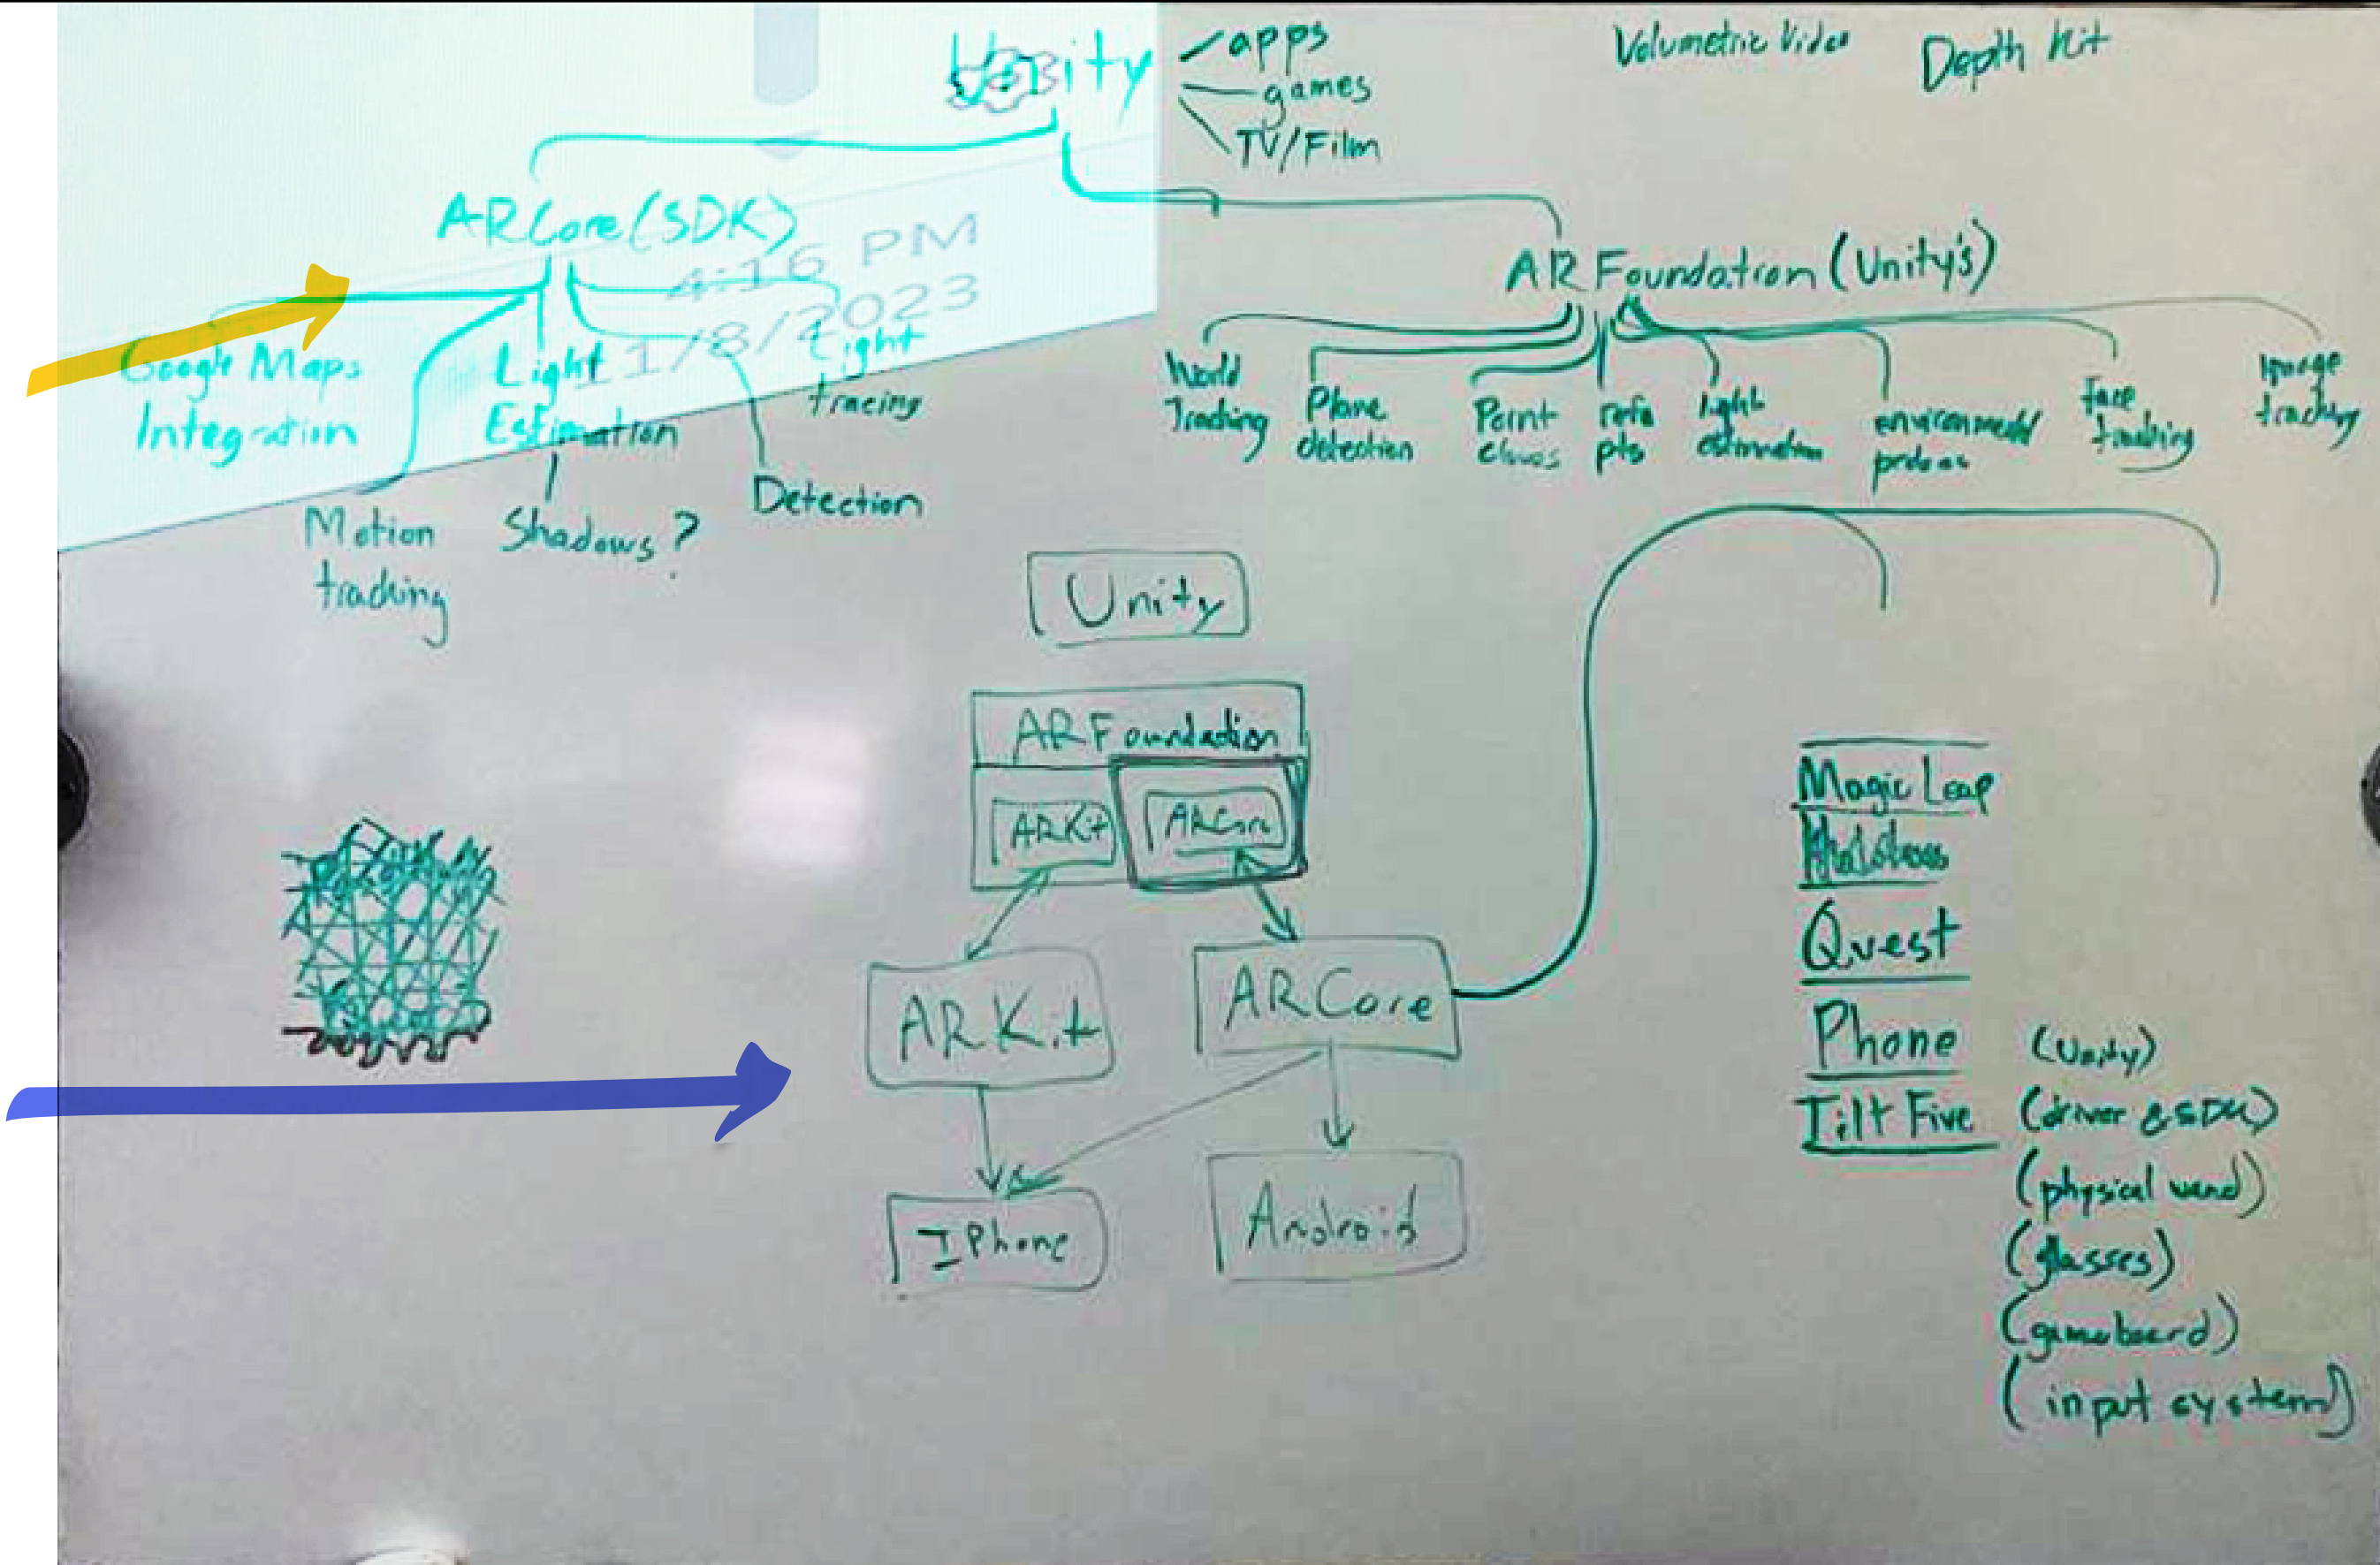 Unity
apps
games
TV/Film
Volumetric Video
Depth Kit
ARCore (SDK)
4:16 PM
1/8/2023
Google Maps
Integration
Motion
tracking
Light
Estimation
Shadows?
Detection
Light
tracing
AR Foundation (Unity's)
World
Tracking
Plane
detection
Point
refe
pts
light
estimation
environmental
Face
tracking
Image
tracking
Unity
AR Foundation
ARKit
ARCore
ARKit
ARCore
IPhone
Android
Magic Leap
Quest
Phone
Tilt Five
(Unity)
(driver & SDK)
(physical wand)
(glasses)
(gameboard)
(input system)